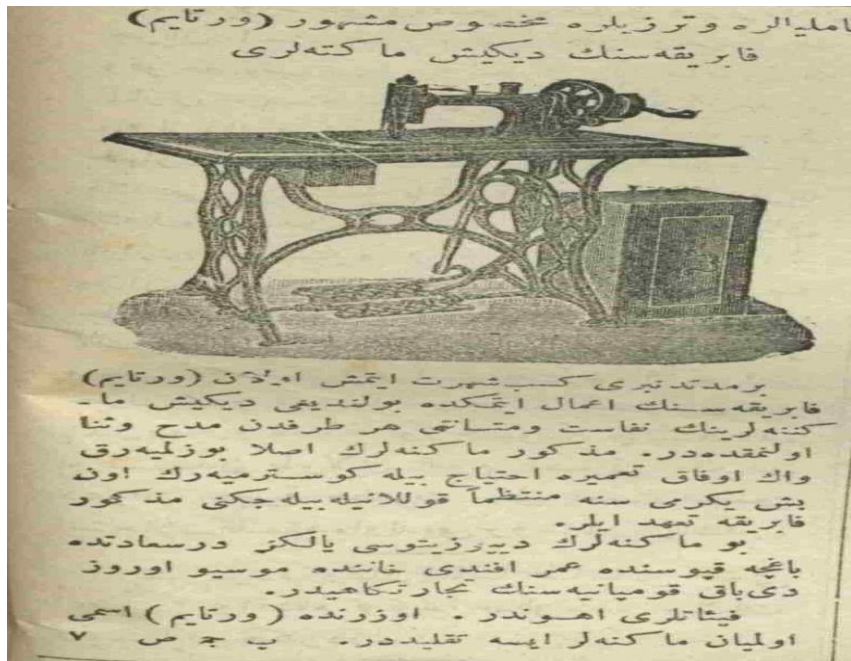 فامليالره وترزيلره مخصوص مشهور (ورتايم)
فابريقه‌سنك ديكيش ماكنه‌لری
برمدتدنبری كسب شهرت ايتمش اولان (ورتايم)
فابريقه‌سنك اعمال ايتمكده بولنديغی ديكيش ما-
كنه‌لرينك نفاست ومتانتی هر طرفدن مدح وثنا
اولنمقده‌در. مذكور ماكنه‌لرك اصلا بوزلميه‌رق
واك اوفاق تعميره احتياج بيله كوسترميه‌رك اون
بش يكرمی سنه منتظماً قوللانيله بيله‌جكنی مذكور
فابريقه تعهد ايلر.
بو ماكنه‌لرك ديپوزيتوسی يالكز درسعادتده
باغچه قپوسنده عمر افندی خاننده موسيو اوروز
دی‌باق قومپانيه‌سنك تجارتكاهيدر.
فيئاتلری اهوندر. اوزرنده (ورتايم) اسمی
اولميان ماكنه‌لر ايسه تقليددر. پ ص ٧